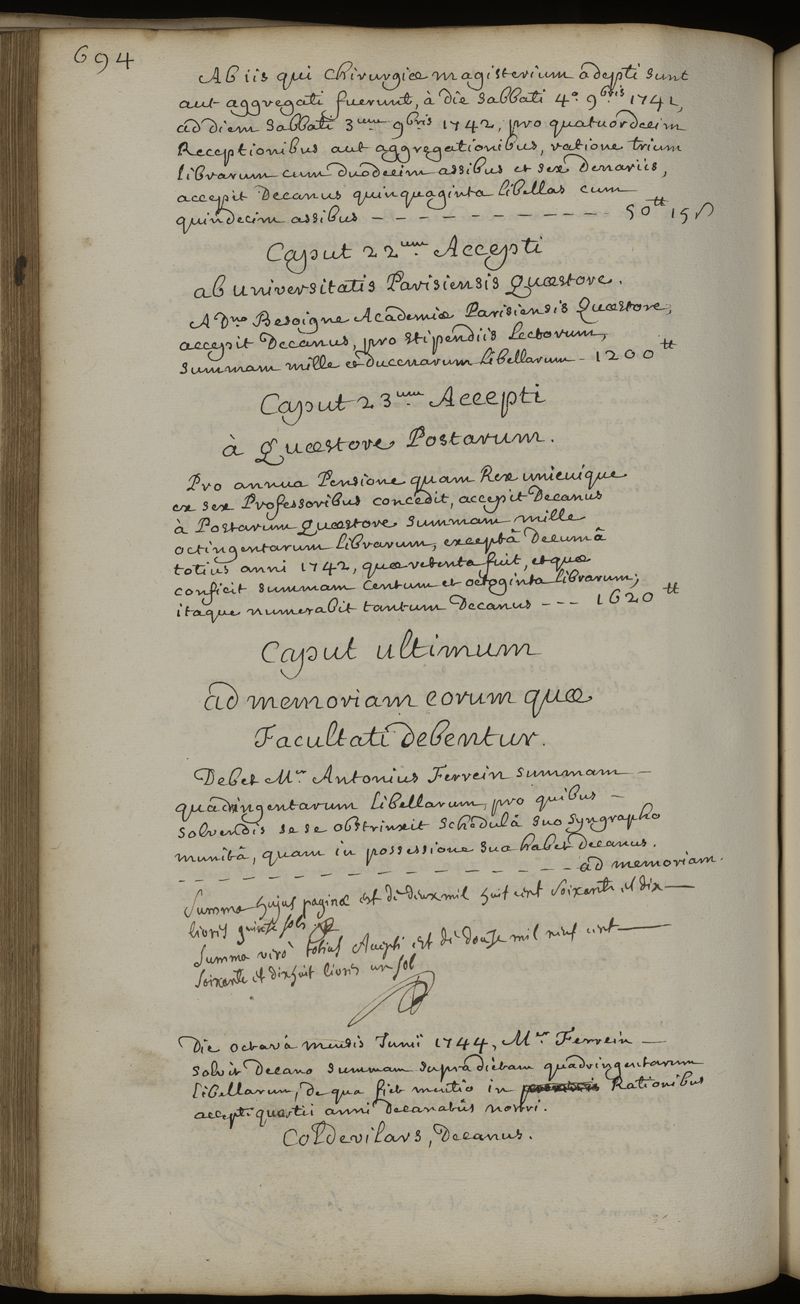 694
Ab iis qui Chirurgiæ magisterium adepti sunt
aut aggregati fuerunt, à die Sabbati 4º. 9bris 1741,
ad diem Sabbati 3um 9bris 1742, pro quatuordecim
Receptionibus aut aggregationibus, ratione trium
librarum cum duodecim assibus et sex Denariis,
accepit Decanus quinquaginta libellas cum
quindecim assibus - - - - - - - - - - - 50tt 15s
Caput 22um. Accepti
ab universitatis Parisiensis Quæstore.
A Dno Besoigne Academiæ Parisiensis Quæstore,
accepit Decanus, pro stipendiis Lectorum,
summam mille et ducentarum libellarum - 1200tt
Caput 23um. Accepti
à Quæstore Postarum.
Pro annua Pensione quam Rex unicuique
ex sex Professoribus concedit, accepit Decanus
à Postarum Quæstore summam mille
octingentarum librarum, exceptâ Decumâ
totius anni 1742, quæ retenta fuit, et quæ
conficit summam centum et octoginta librarum;
itaque numerabit tantum Decanus - - - 1620tt
Caput ultimum
ad memoriam eorum quæ
Facultati debentur.
Debet Mer. Antonius Ferrein summam -
quadringentarum libellarum, pro quibus -
solvendis se se obstrinxit schedulâ suo syngrapho
munitâ, quam in possessione sua habet Decanus.
- - - - - - - - - - - - - - ad memoriam.
Summa hujus paginæ est de deux mil huit cent soixante et dix
livres quinze sols
Summa verò totius Accepti est de douze mil neuf cent
soixante et dixhuit livres un sol
Die octavâ mensis Junii 1744, Mer. Ferrein -
solvit Decano summam supradictam quadringentarum
libellarum, de qua fiet mentio in Rationibus
accepti quartii anni Decanatûs nostri.
Col de vilars, Decanus.